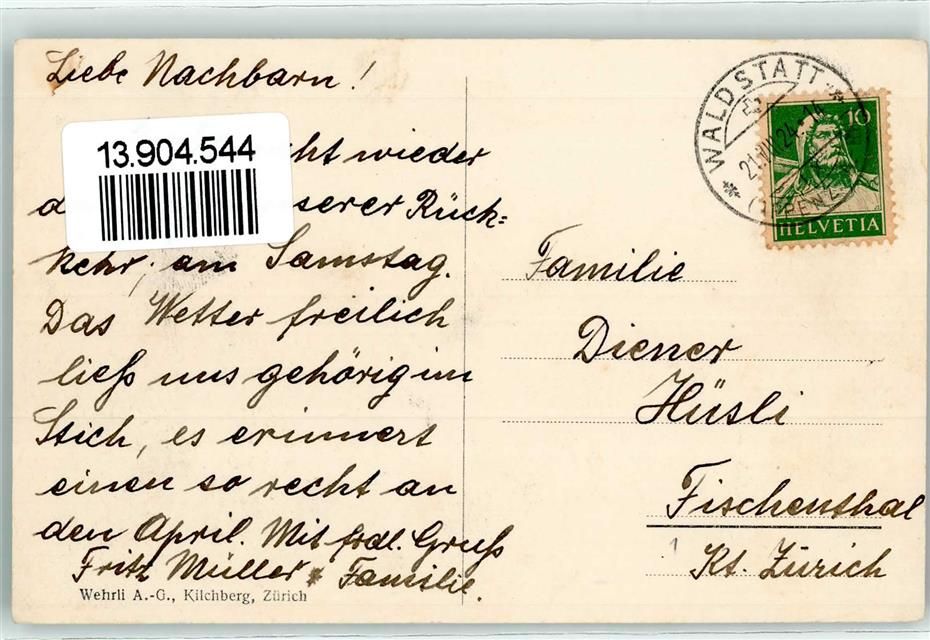 Liebe Nachbarn!
13.904.544
wieder
d serer Rück=
kehr, am Samstag.
Das Wetter freilich
ließ uns gehörig im
Stich, es erinnert
einen so recht an
den April. Mit frdl. Gruß
Fritz Müller & Familie.
Wehrli A.-G., Kilchberg, Zürich
WALDSTATT
10
HELVETIA
Familie
Diener
Hüsli
Fischenthal
Kt. Zürich